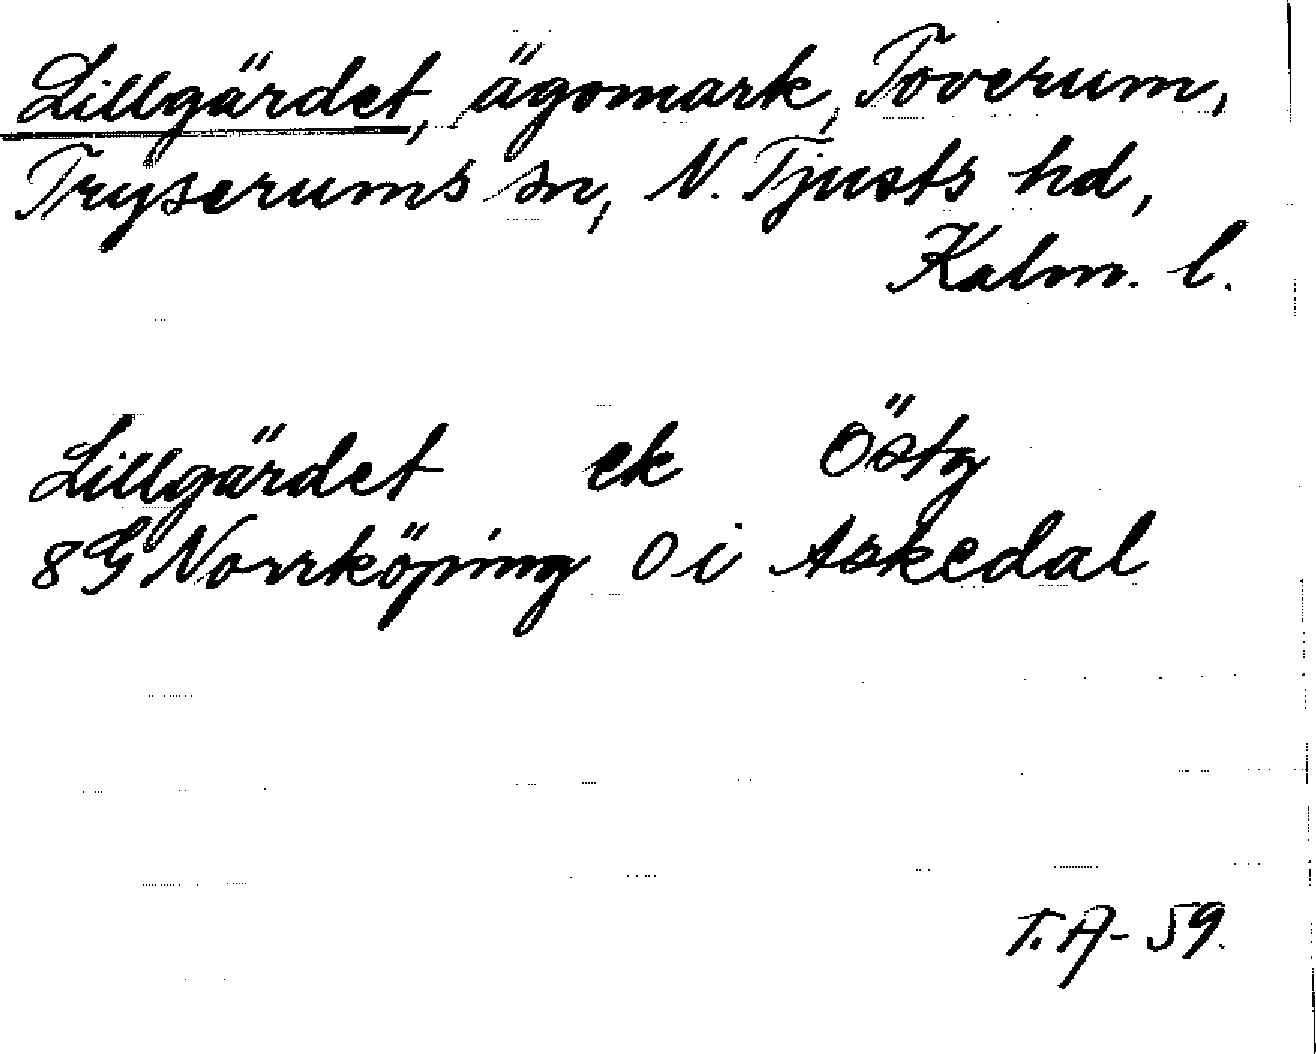 Lillgärdet, ägomark, Toverum,
Tryserums sn, N. Tjusts hd,
Kalm. l.
Lillgärdet ek Östg
8G Norrköping O i Askedal
T. A- 59.